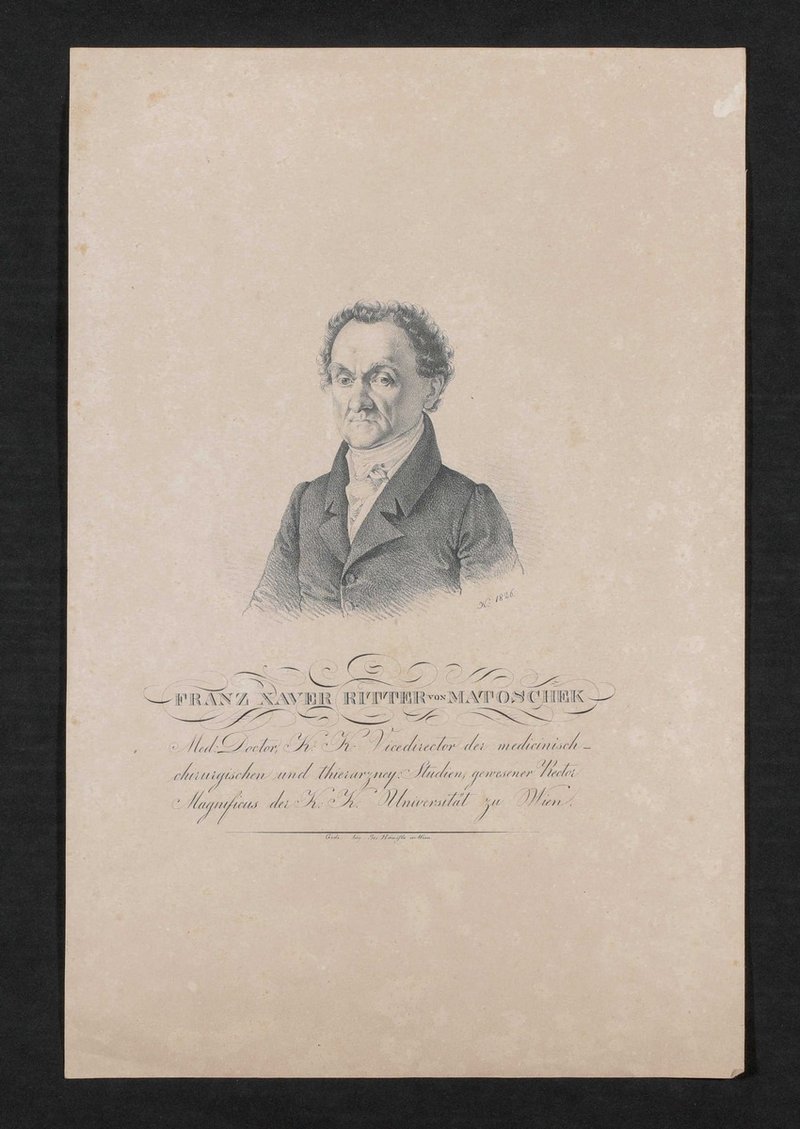 K: 1826.
FRANZ XAVER RITTER VON MATOSCHEK
Med: Doctor, K: K: Vicedirector der medicinisch-
chirurgischen und thierarzney: Studien, gewesener Rector
Magnificus der K: K: Universität zu Wien.
bey Jos. Häusle in Wien